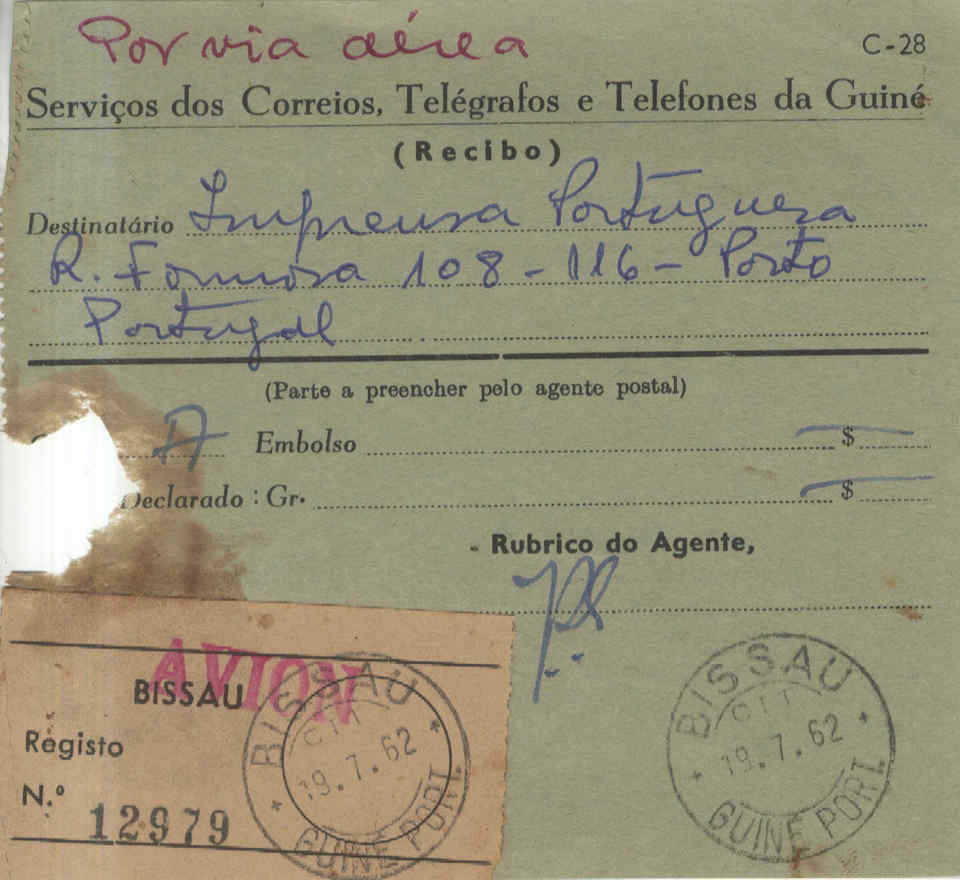 Por via aérea
C-28
Serviços dos Correios, Telégrafos e Telefones da Guiné
(Recibo)
Destinatário Imprensa Portuguesa
R. Formosa 108-116- Porto
Portugal
(Parte a preencher pelo agente postal)
A Embolso $
Declarado : Gr. $
- Rubrico do Agente,
AVION
BISSAU
Registo
N.º 12979
BISSAU
CTT
19.7.62
GUINÉ PORT.
BISSAU
CTT
19.7.62
GUINÉ PORT.